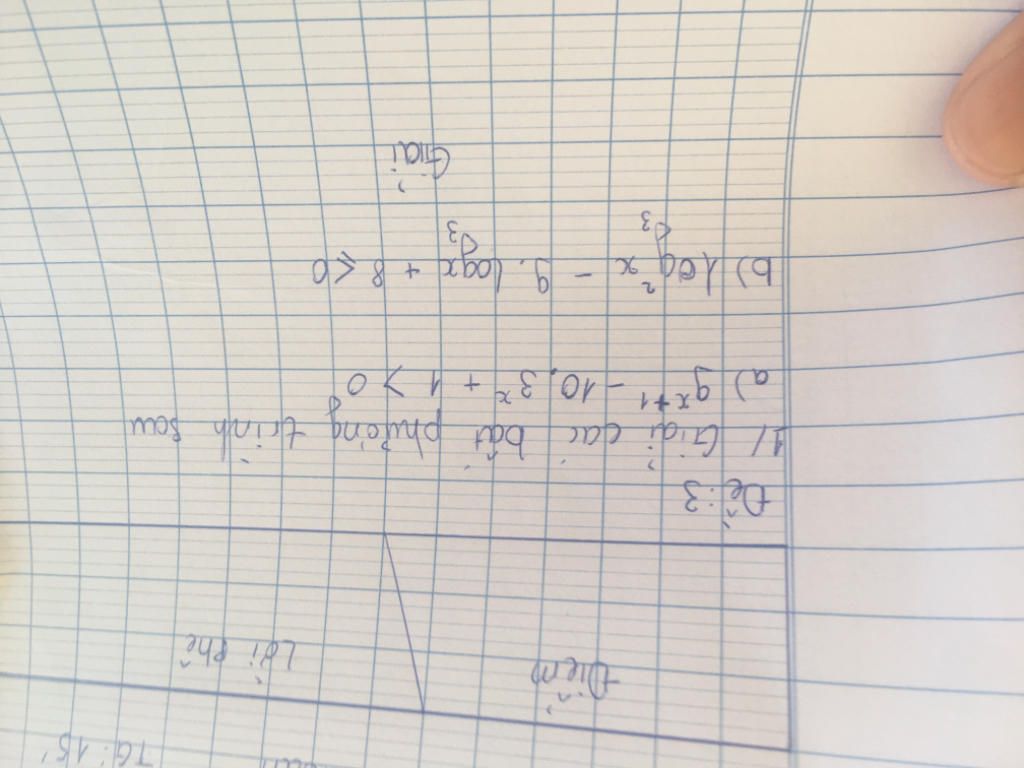 TG: 15'
Điểm Lời phê
Đề: 3
1/ Giải các bất phương trình sau
a) 9ˣ⁺¹ - 10.3ˣ + 1 > 0
b) log₃²x - 9.log₃x + 8 ≤ 0
Giải